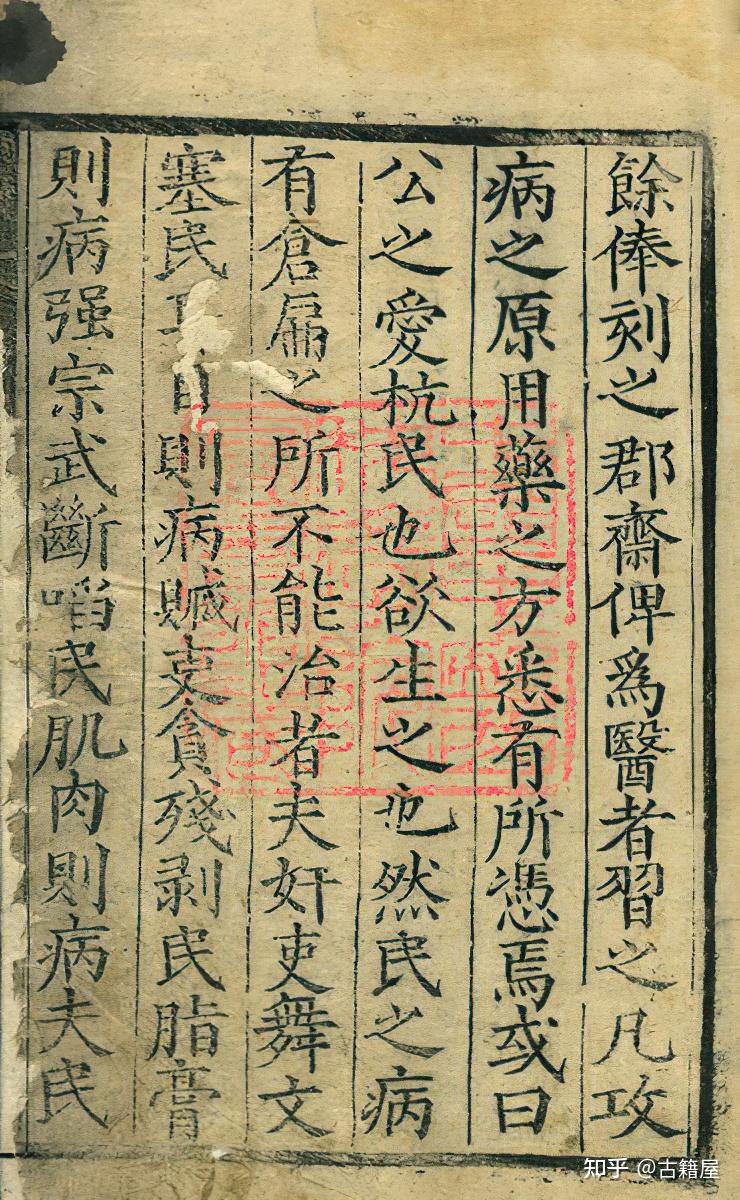 餘俸刻之郡齋俾爲醫者習之凡攻
病之原用藥之方悉有所憑焉或曰
公之愛杭民也欲生之也然民之病
有倉扁之所不能治者夫奸吏舞文
塞民目則病贓吏貪殘剥民脂膏
則病强宗武斷啗民肌肉則病夫民
知乎 @古籍屋